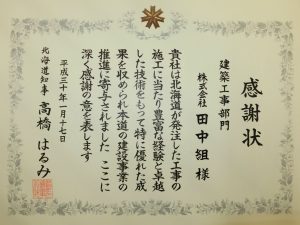 感謝状
建築工事部門
株式会社 田中組 様
貴社は北海道が発注した工事の
施工に当たり豊富な経験と卓越
した技術をもって特に優れた成
果を収められ本道の建設事業の
推進に寄与されました ここに
深く感謝の意を表します
平成三十年一月十七日
北海道知事 高橋 はるみ